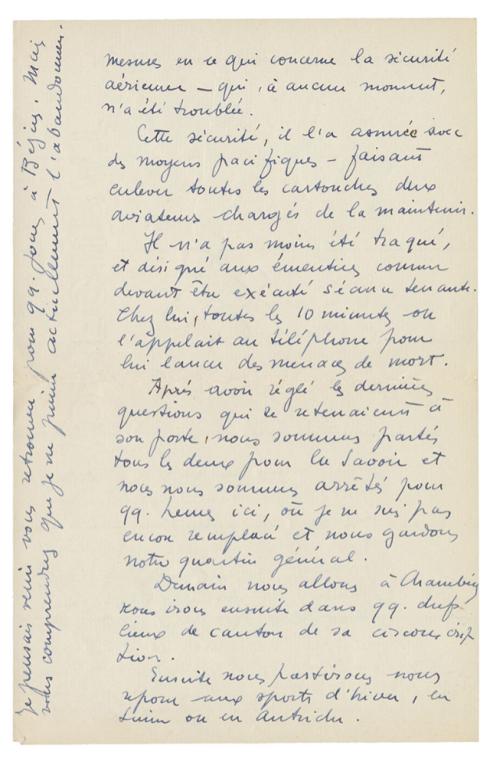 mesures en ce qui concerne la sécurité
aérienne — qui, à aucun moment,
n'a été troublée.
Cette sécurité, il l'a assurée avec
des moyens pacifiques — faisant
enlever toutes les cartouches des
aviateurs chargés de la maintenir.
Il n'a pas moins été traqué,
et désigné aux émeutiers comme
devant être exécuté séance tenante.
Chez lui, toutes les 10 minutes on
l'appelait au téléphone pour
lui lancer des menaces de mort.
Après avoir réglé les dernières
questions qui le retenaient à
son poste, nous sommes partis
tous les deux pour la Savoie et
nous nous sommes arrêtés pour
qq. heures ici, où je ne suis pas
encore remplacé et nous gardons
notre quartier général.
Demain nous allons à Chambéry
nous irons ensuite dans qq. chefs
lieux de canton de sa circonscrip
tion.
Ensuite nous partirons nous
reposer aux sports d'hiver, en
Suisse ou en Autriche.
Je pensais venir vous retrouver pour qq. jours à Béziers. Mais
vous comprendrez que je ne puisse actuellement l'abandonner.